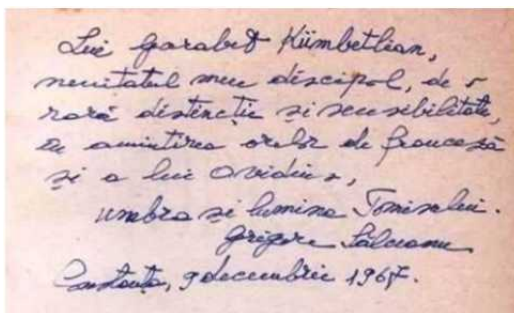 Lui Garabet Kümbetlian,
neuitatul meu discipol, de o
rară distincție și sensibilitate,
în amintirea orelor de franceză
și a lui Ovidiu,
umbra și lumina Tomisului.
Grigore Sălceanu
Constanța, 9 decembrie 1967.